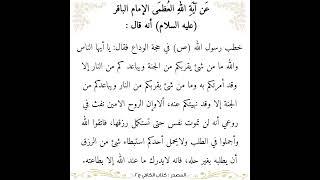 عَن آيَةِ اللّٰهِ العُظمَى الإمام الباقر
(عليه السلام) أنه قال :
خطب رسول الله (ص) في حجة الوداع فقال: يا أيها الناس
والله ما من شئ يقربكم من الجنة ويباعد كم من النار إلا
وقد أمرتكم به وما من شئ يقربكم من النار ويباعدكم من
الجنة إلا وقد نهيتكم عنه، ألا وإن الروح الامين نفث في
روعي أنه لن تموت نفس حتى تستكمل رزقها، فاتقوا الله
وأجملوا في الطلب ولا يحمل أحدكم استبطاء شئ من الرزق
أن يطلبه بغير حله، فإنه لا يدرك ما عند الله إلا بطاعته.
المصدر : كتاب الكافي ج٢